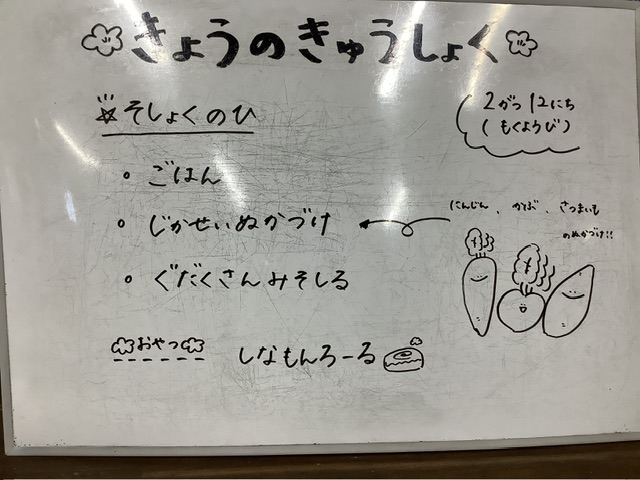 きょうのきゅうしょく
2がつ12にち
(もくようび)
☆そしょくのひ
・ごはん
・じかせいぬかづけ
にんじん、かぶ、さつまいも
のぬかづけ!!
・ぐだくさんみそしる
おやつ
しなもんろーる